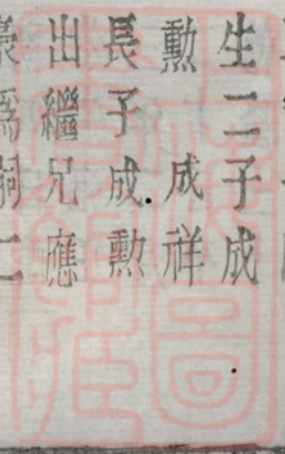 生二子成
勳　成祥
長子成勳
出繼兄應
為嗣二